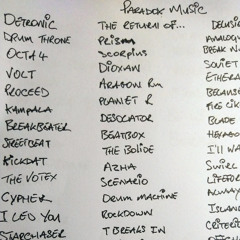 Paradox Music
Detronic
Drum Throne
Octa4
Volt
Proceed
Kampala
Breakbeater
Streetbeat
Kickdat
The Votex
Cypher
I Led You
Starchaser
The Return of...
Prism
Scorpius
Dioxan
Aragon Rm
Planet R
Desolator
Beatbox
The Bolide
Azha
Scenario
Drum Machine
Rockdown
T Breaks In
Delusio
Analogu
Break N
Soviet
Ethera
Because
Fire Clic
Blade
Hexago
I'll Wa
Swirl
Lifefor
Alway
Island
Criteri